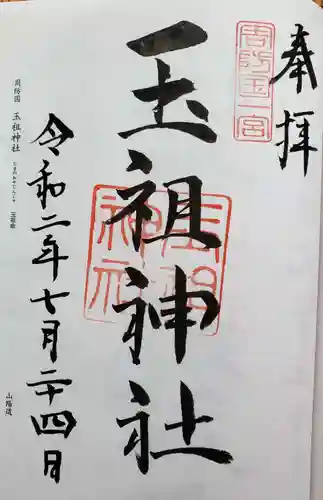 奉拝
周防国一宮
玉祖神社
玉祖神社
令和二年七月二十四日
周防国 玉祖神社
山陽道